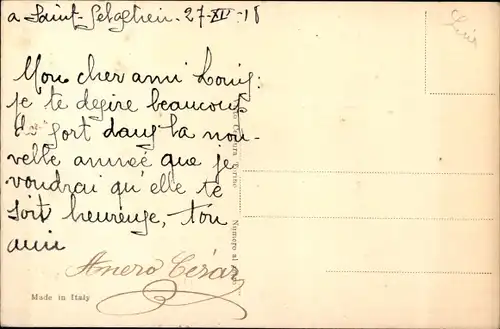 a Saint-Sebastien. 27-XII-18
Mon cher ami Louis:
je te desire beaucoup
de sort dans la nou-
velle année que je
voudrai qu'elle te
soit heureuse, ton
ami
Anero Cesar
Made in Italy